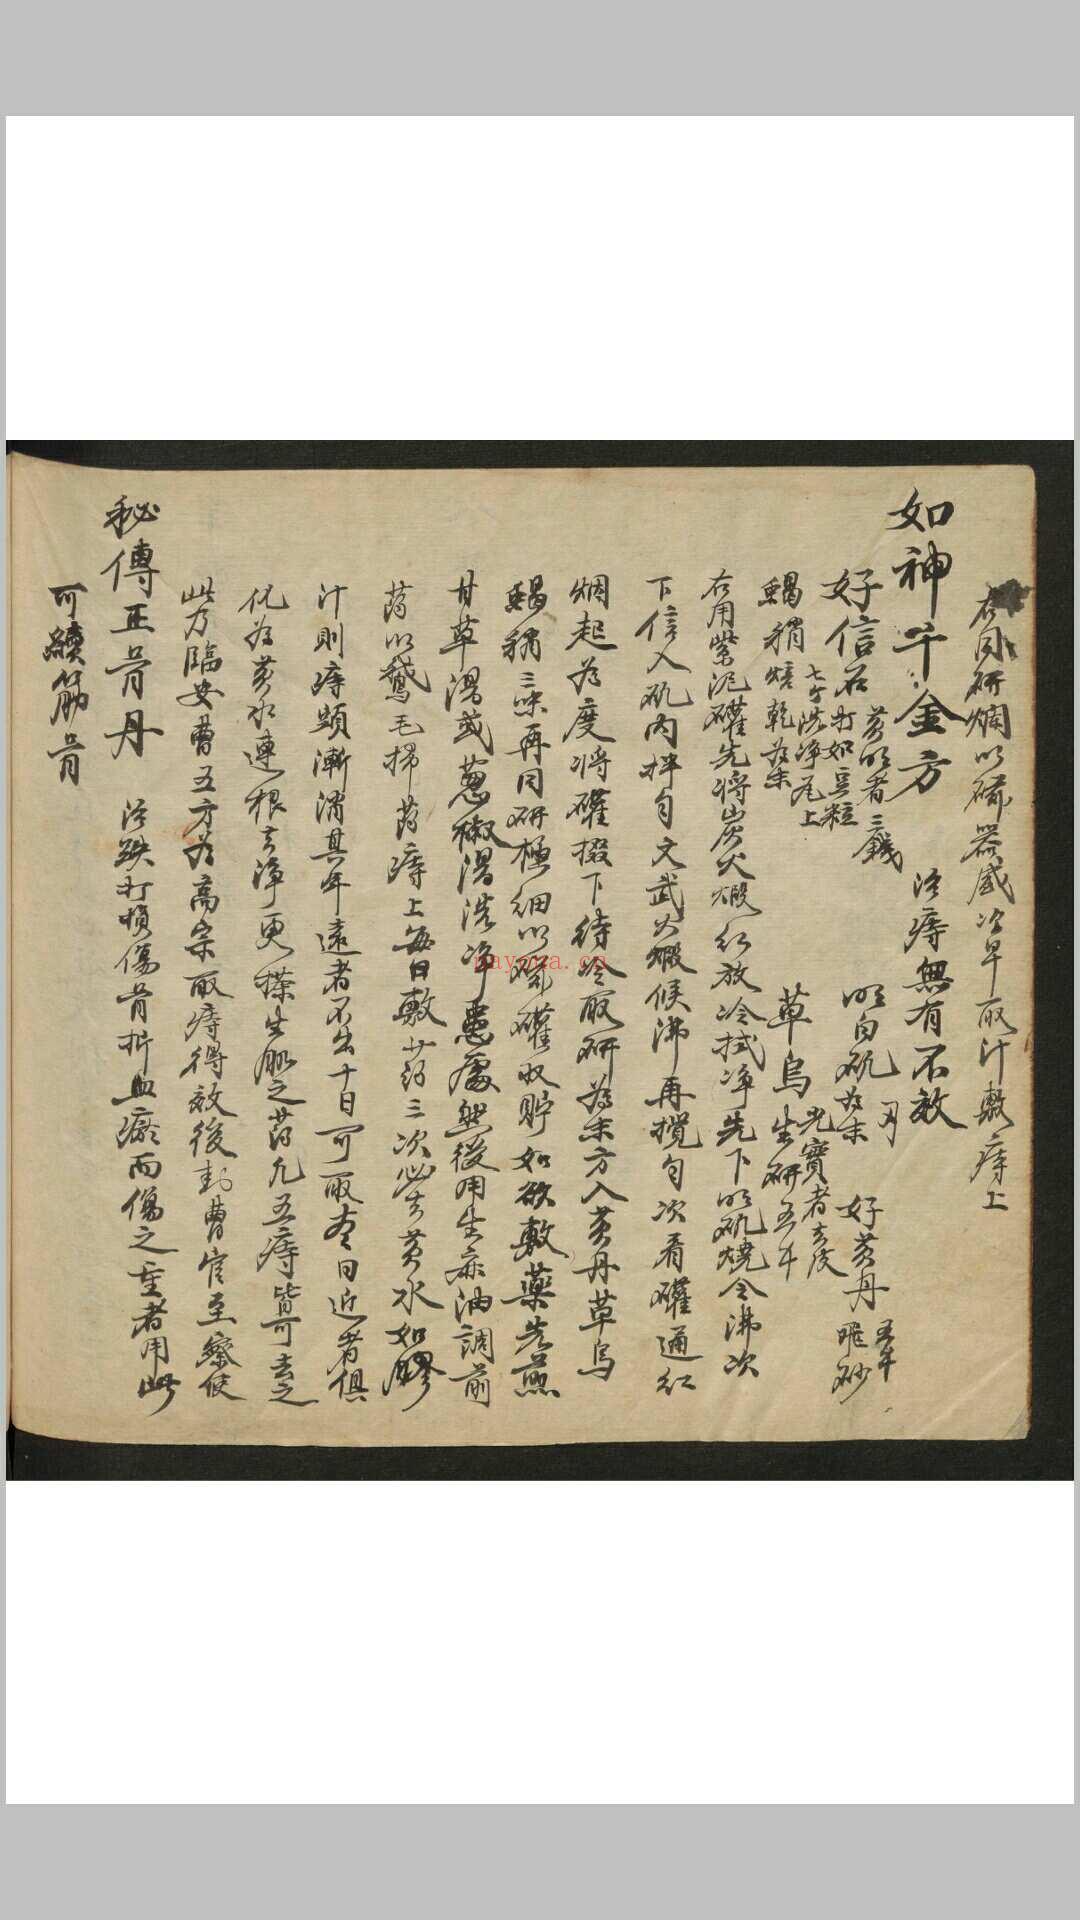 右同研爛以磁器盛次早取汁敷痔上
如神千金方 治痔無有不效
好信石 黄明者三錢 打如豆粒 明白矾 為末 一两 好黄丹 五千 飛砂
蝎稍 七个洗净瓦上焙乾為末 草烏 光實者去皮生研五千
右用紫泥礶先將炭火煅紅放冷拭净先下明矾燒令沸次
下信入矾内拌匀文武火煅候沸再攪匀次看礶通紅
烟起為度將礶掇下待冷取研為末方入黄丹草烏
蝎稍三味再同研極細以磁礶收貯如欲敷藥先煎
甘草湯或葱椒湯洗净患處然後用生麻油調前
药以鵝毛掃药痔上每日敷药三次必去黄水如膠
汁則痔頭漸消其年遠者不出十日可取盡日近者俱
化為黄水連根去净更搽生肌之药凡五痔皆可去之
此乃臨安曹五方為高宗取痔得效後封曹官至察使
秘傳正骨丹 治跌打損傷骨折血瘀而傷之重者用此
可續筋骨
nayona.cn